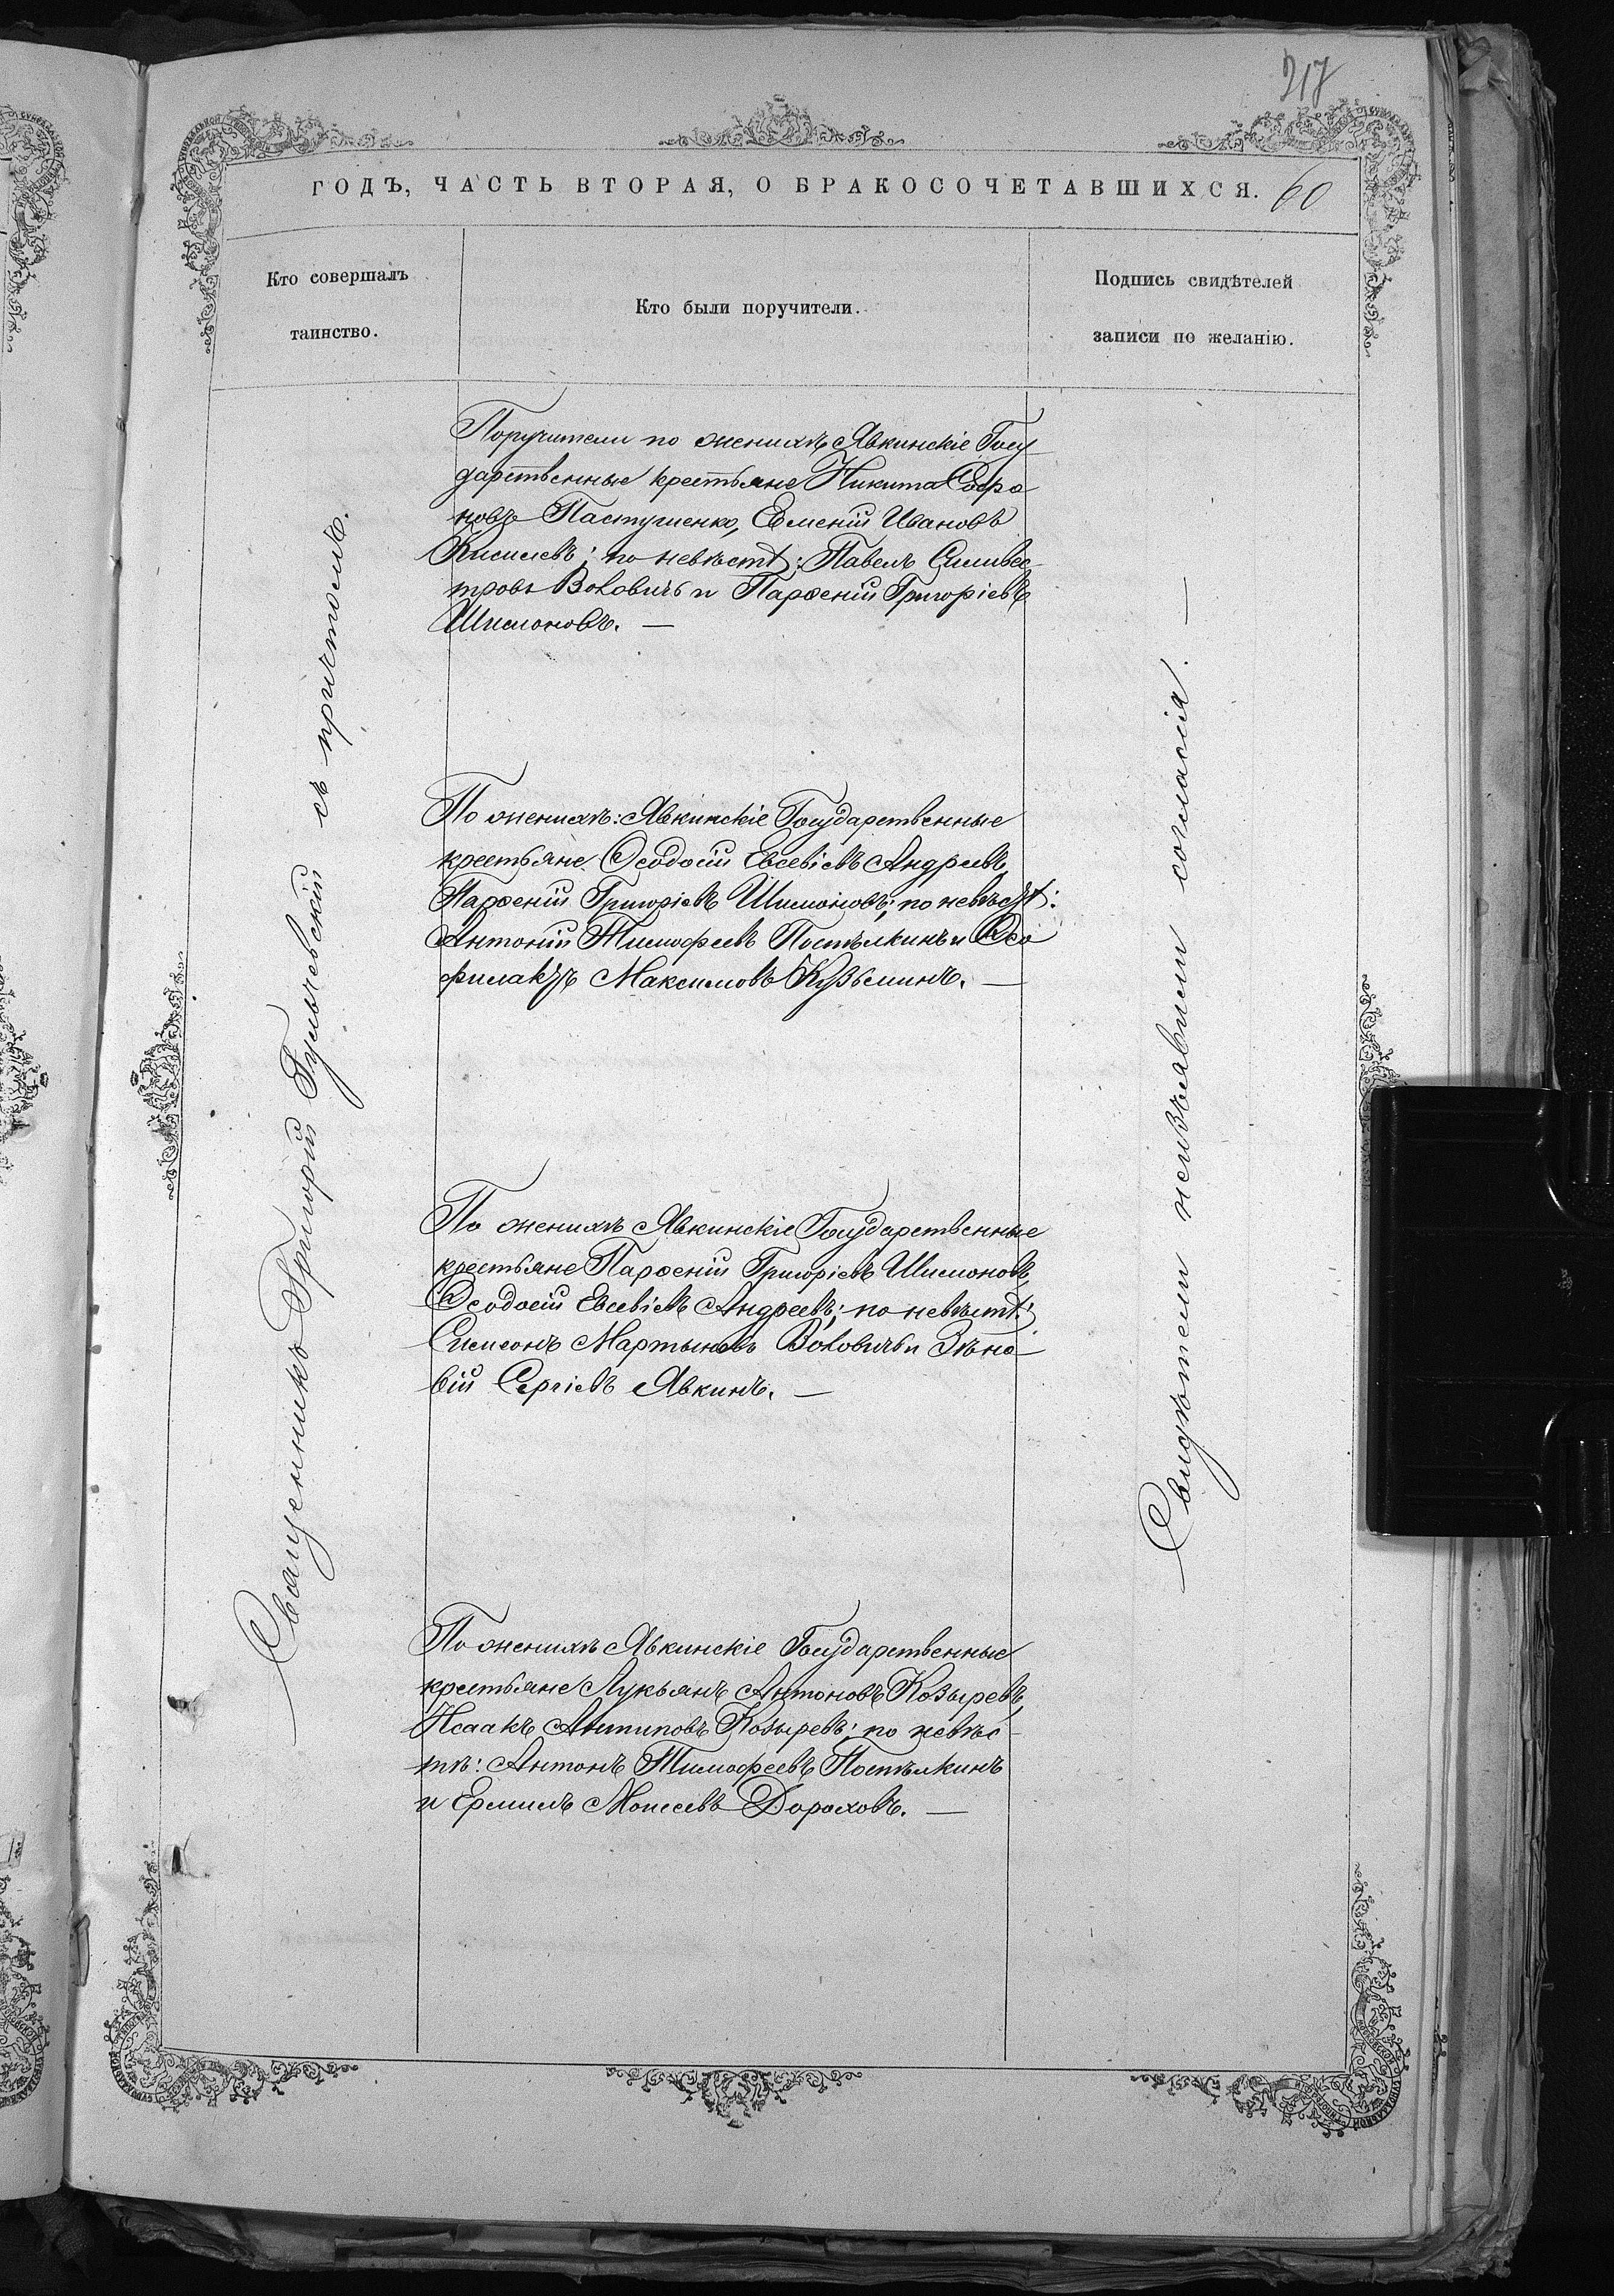 217
ГОДЪ, ЧАСТЬ ВТОРАЯ, О БРАКОСОЧЕТАВШИХСЯ. 60
Кто совершалъ
таинство.
Кто были поручители.
Подпись свидѣтелей
записи по желанію.
Священникъ Григорій Гульчевскій съ причтомъ.
Поручители по женихѣ Явкинскіе Госу-
дарственные крестьяне Никита Софро-
новъ Пастушенко, Евменій Ивановъ
Киселевъ; по невѣстѣ: Павелъ Сильвес-
тровъ Воловичъ и Парѳеній Григоріевъ
Шимоновъ. —
По женихѣ: Явкинскіе Государственные
крестьяне Ѳеодосій Евсевіевъ Андреевъ,
Парѳеній Григоріевъ Шимоновъ; по невѣстѣ:
Антоній Тимофеевъ Постѣлкинъ и Ѳео
филактъ Максимовъ Кузьминъ. —
По женихѣ Явкинскіе Государственные
крестьяне Парѳеній Григоріевъ Шимоновъ,
Ѳеодосій Евсевіевъ Андреевъ; по невѣстѣ:
Симеонъ Мартыновъ Воловичъ и Зѣно-
вій Сергіевъ Явкинъ. —
По женихѣ Явкинскіе Государственные
крестьяне Лукьянъ Антоновъ Козыревъ,
Исаакъ Антиповъ Козыревъ; по невѣс-
тѣ: Антонъ Тимофеевъ Постѣлкинъ
и Ермилъ Моисеевъ Дороховъ. —
Свидѣтели неизъявили согласія. —